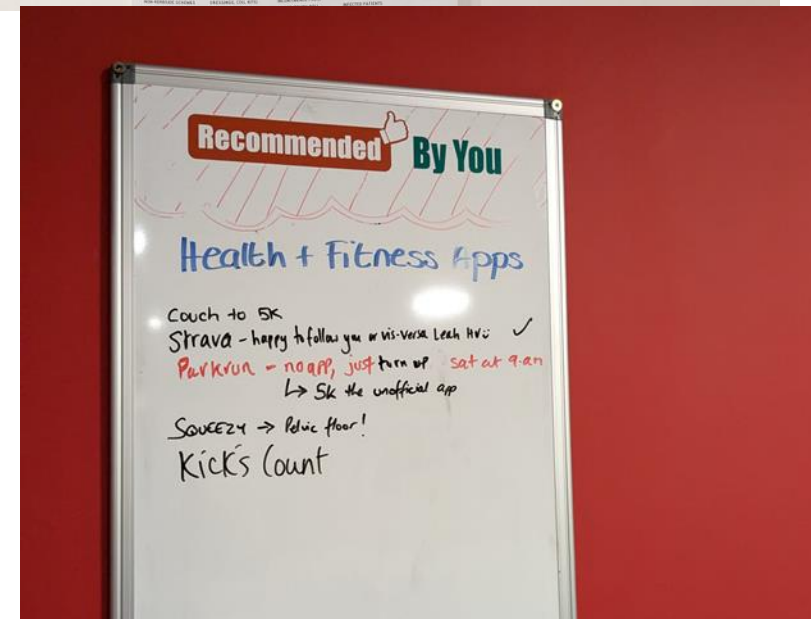 Recommended By You
Health + Fitness Apps
Couch to 5K
Strava - happy to follow you or vis-versa Leah
Parkrun - no app, just turn up sat at 9.am
↳ 5k the unofficial app
SQUEEZY → Pelvic floor!
Kick's Count